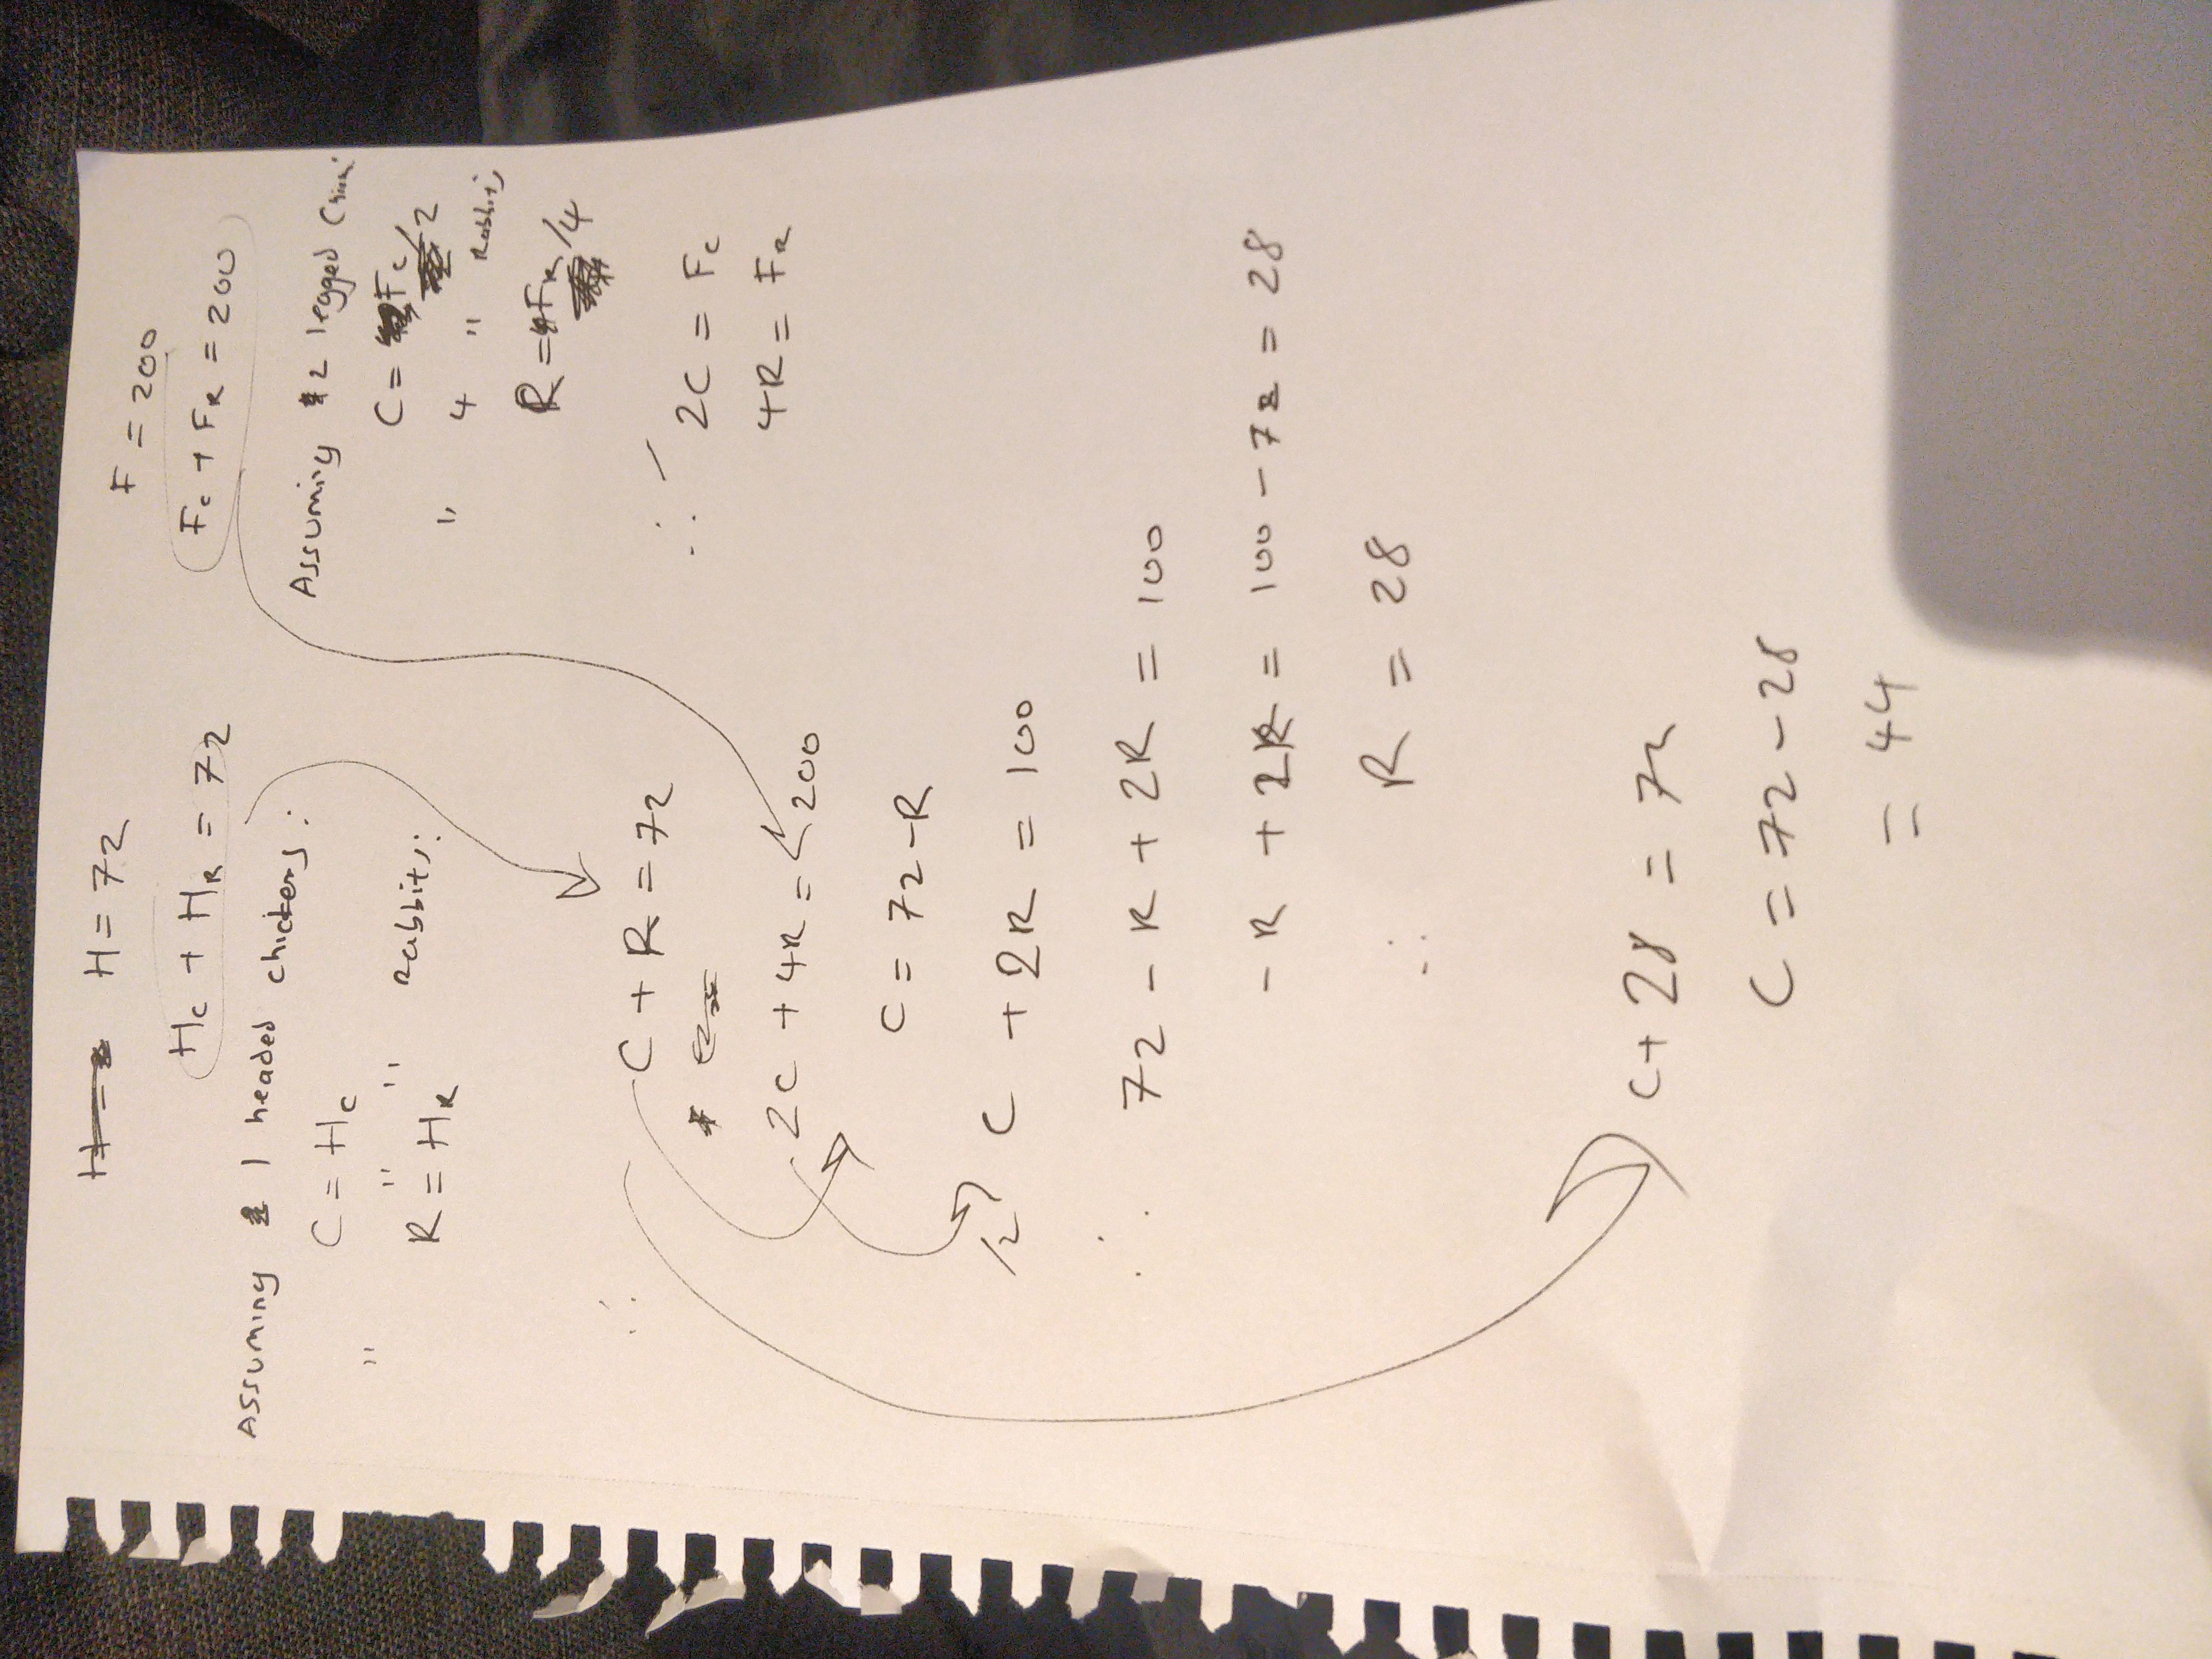 H = 72
Hc + HR = 72
Assuming 1 headed chickens:
C = Hc
" " " rabbits:
R = HR
F = 200
Fc + FR = 200
Assuming 2 legged
C = Fc/2
" 4 " Rabbits
R = FR/4
∴ 2C = Fc
4R = FR
∴ C + R = 72
2C + 4R = 200
C = 72 - R
/2 C + 2R = 100
∴ 72 - R + 2R = 100
- R + 2R = 100 - 72 = 28
∴ R = 28
C + 28 = 72
C = 72 - 28
= 44